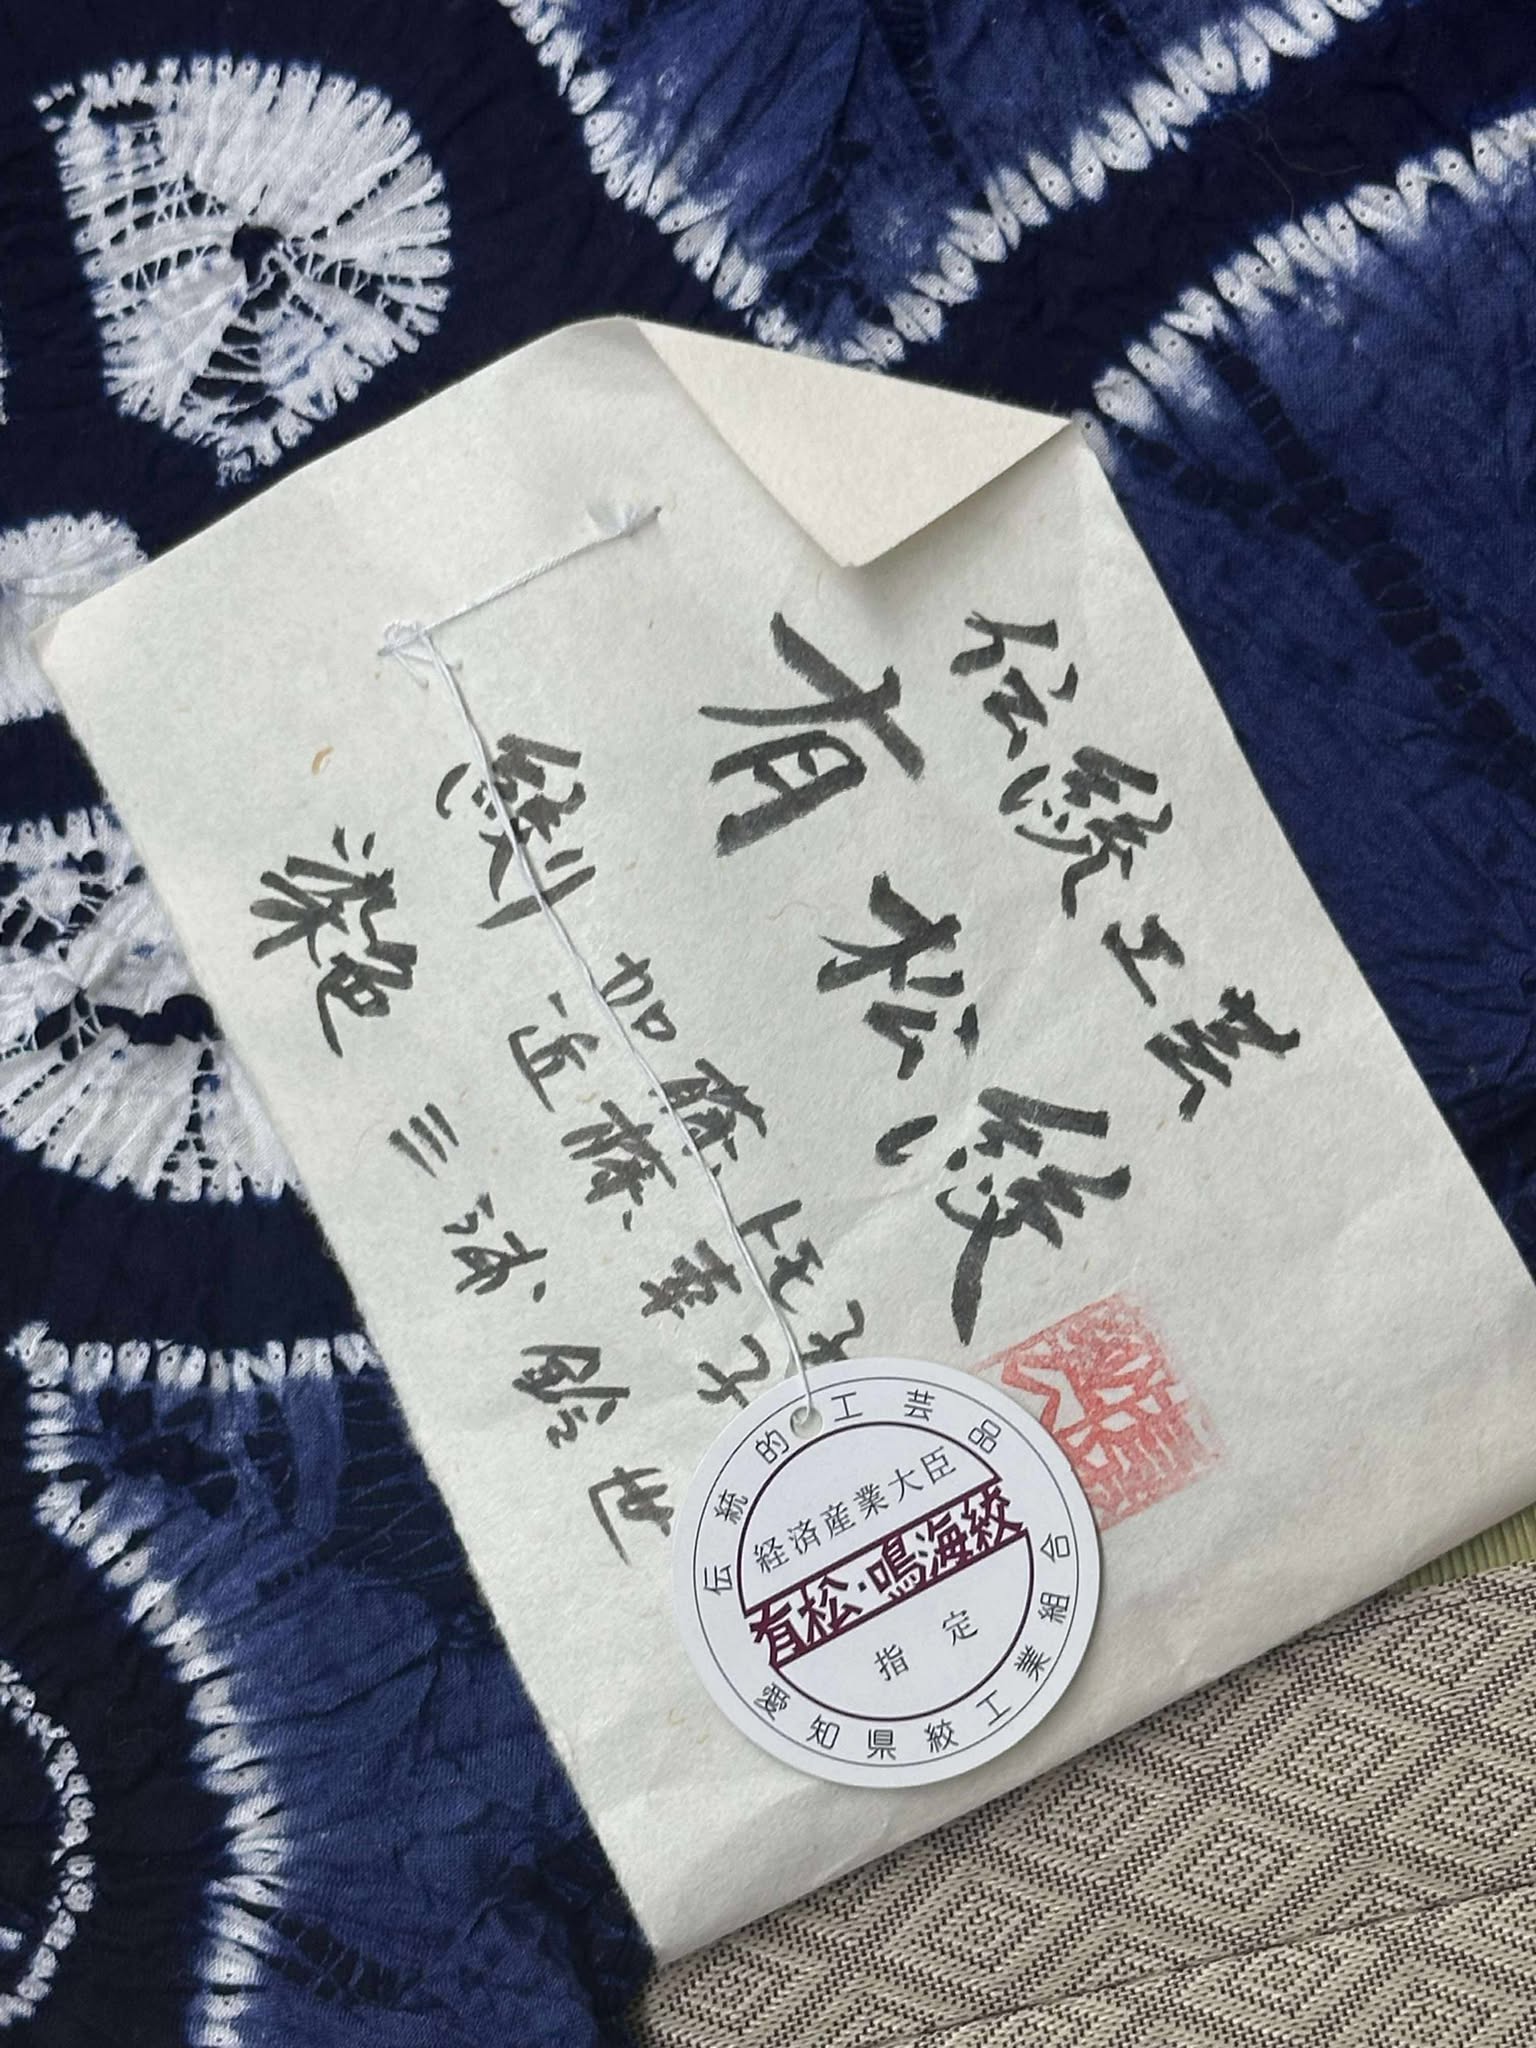 伝統工芸
有松絞
絞り 加藤
近藤 幸子
染色 三浦
伝統的工芸品
経済産業大臣
有松・鳴海絞
指定
愛知県絞工業組合